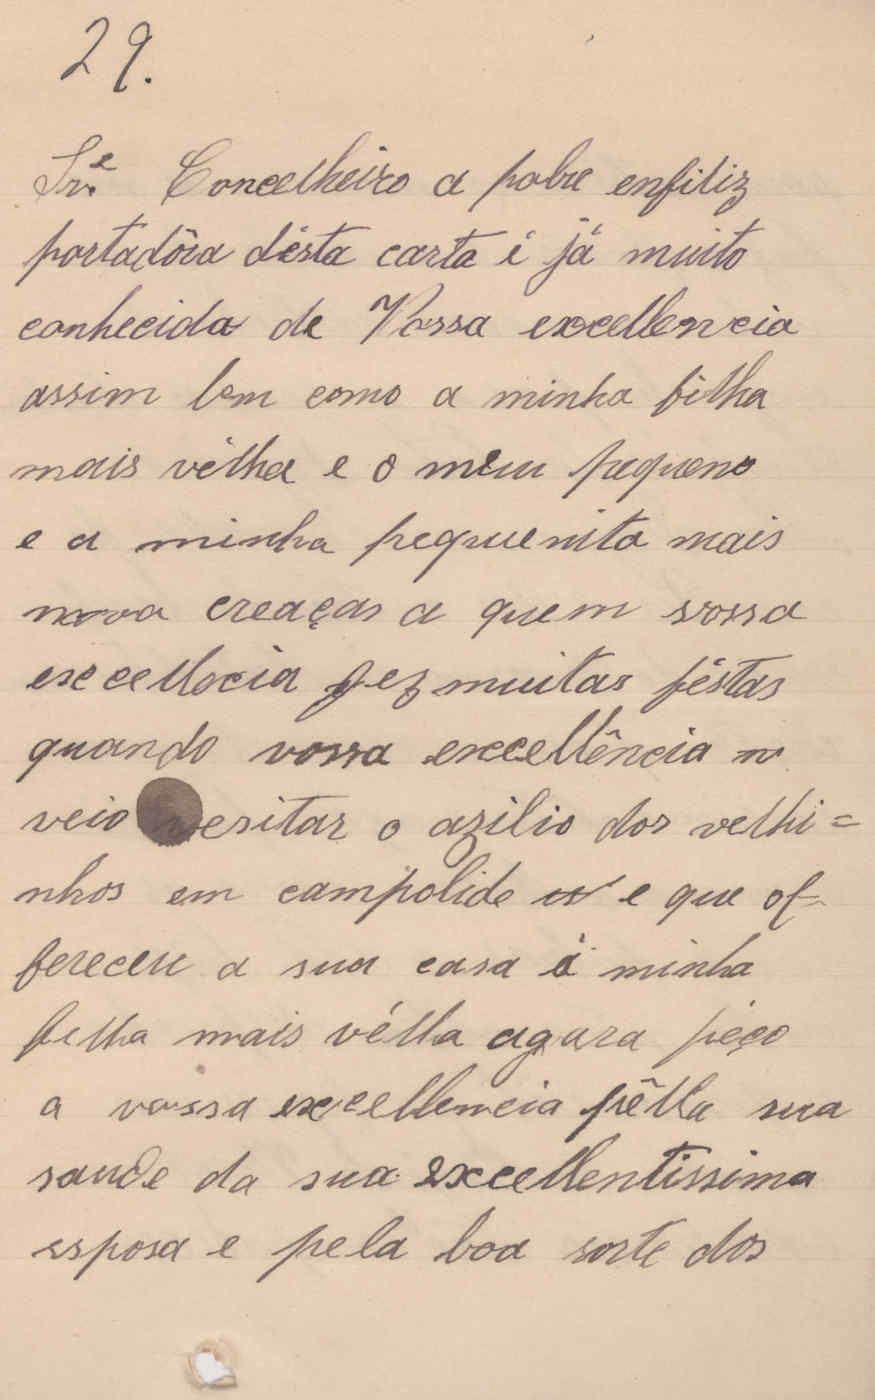 29.
Snr.e Concelheiro a pobre enfiliz
portadôra désta carta é já muito
conhecida de Vossa excellencia
assim bem como a minha filha
mais vélha e o meu pequeno
e a minha pequenita mais
nova creaças a quem vossa
excellecia fez muitas féstas
quando vossa excellência
veio vesitar o azilio dos velhi=
nhos em campolide e que of-
fereceu a sua casa á minha
filha mais vélha agura péço
a vossa excellencia pêlla sua
saude da sua excellentissima
esposa e pela boa sorte dos